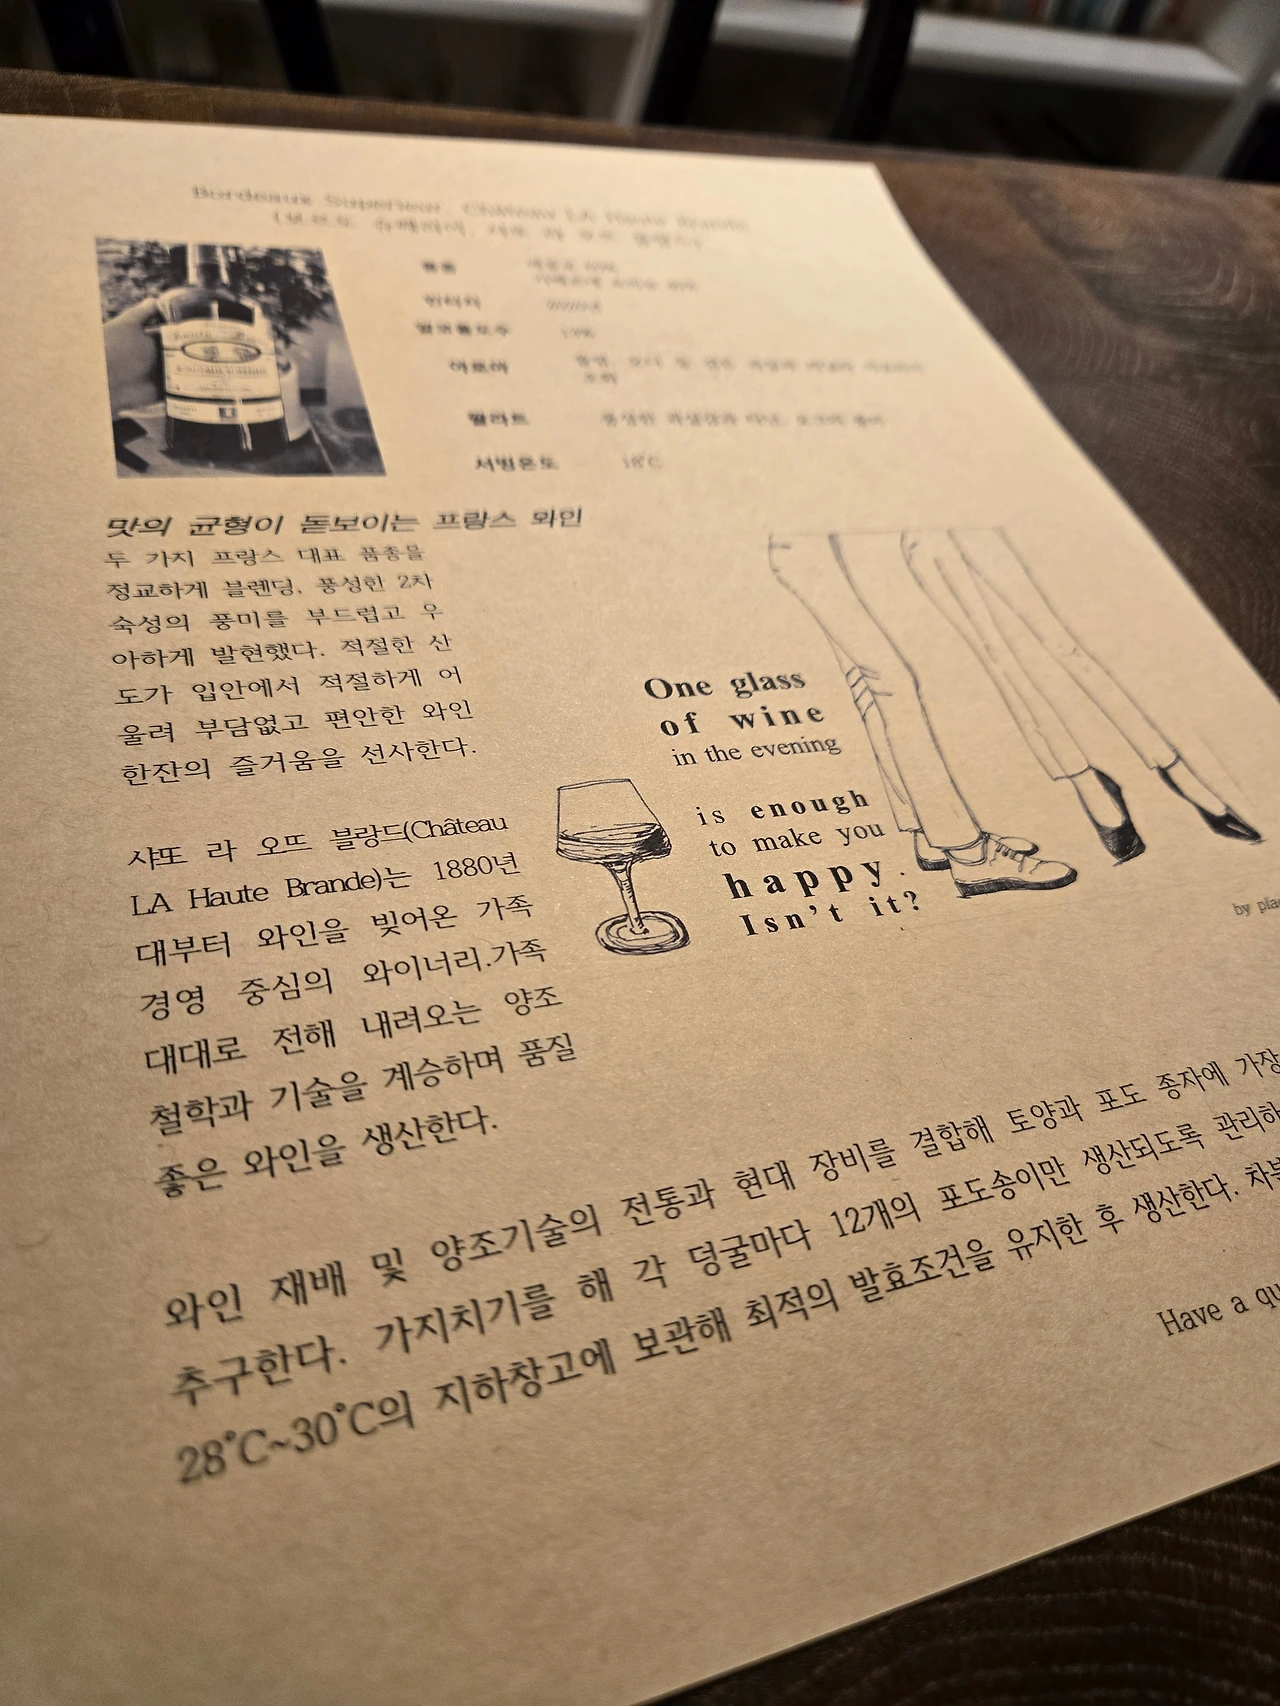 Bordeaux Superieur, Château LA Haute Brande
빈티지
알코올도수 13%
아로마
팔라트
서빙온도 18℃
맛의 균형이 돋보이는 프랑스 와인
두 가지 프랑스 대표 품종을
정교하게 블렌딩, 풍성한 2차
숙성의 풍미를 부드럽고 우
아하게 발현했다. 적절한 산
도가 입안에서 적절하게 어
울려 부담없고 편안한 와인
한잔의 즐거움을 선사한다.
One glass
of wine
in the evening
is enough
to make you
happy.
Isn't it?
by
샤또 라 오뜨 블랑드(Château
LA Haute Brande)는 1880년
대부터 와인을 빚어온 가족
경영 중심의 와이너리.가족
대대로 전해 내려오는 양조
철학과 기술을 계승하며 품질
좋은 와인을 생산한다.
와인 재배 및 양조기술의 전통과 현대 장비를 결합해 토양과 포도 종자에 가장
추구한다. 가지치기를 해 각 덩굴마다 12개의 포도송이만 생산되도록 관리하
28℃~30℃의 지하창고에 보관해 최적의 발효조건을 유지한 후 생산한다.
Have a